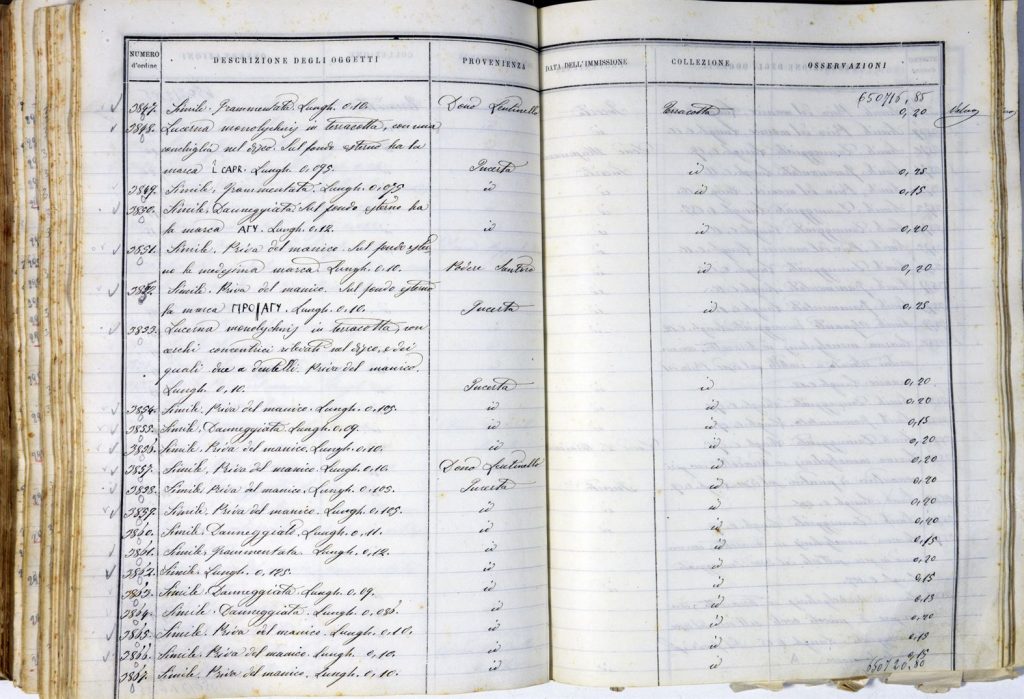 NUMERO d'ordine DESCRIZIONE DEGLI OGGETTI PROVENIENZA DATA DELL'IMMISSIONE COLLEZIONE OSSERVAZIONI
650716,85
3847. Simile. Frammentata. Lungh. 0,10. Dono Lentinello Terracotta 0,20
3848. Lucerna monolychnis in terracotta, con una
conchiglia nel disco. Sul fondo esterno ha la
marca L CAPR. Lungh. 0,075. Incerta id 0,25
3849. Simile, frammentata. Lungh. 0,075 id id 0,15
3850. Simile. Danneggiata. Sul fondo esterno ha
la marca ΑΓΥ. Lungh. 0,12. id id 0,20
3851. Simile. Priva del manico. Sul fondo ester-
no la medesima marca. Lungh. 0,10. Podere id 0,20
3852. Simile. Priva del manico. Sul fondo esterno
la marca ΠΡΟ|ΑΓΥ. Lungh. 0,10. Incerta id 0,25
3853. Lucerna monolychnis in terracotta, con
cerchi concentrici rilevati nel disco, e dei
quali due a dentelli. Priva del manico.
Lungh. 0,10. Incerta id 0,20
3854. Simile. Priva del manico. Lungh. 0,105. id id 0,20
3855. Simile. Danneggiata. Lungh. 0,09. id id 0,15
3856. Simile. Priva del manico. Lungh. 0,10. id id 0,20
3857. Simile. Priva del manico. Lungh. 0,10. Dono Lentinello id 0,20
3858. Simile. Priva del manico. Lungh. 0,105. Incerta id 0,20
3859. Simile. Priva del manico. Lungh. 0,105. id id 0,20
3860. Simile. Danneggiata. Lungh. 0,11. id id 0,20
3861. Simile. Frammentata. Lungh. 0,12. id id 0,15
3862. Simile. Lungh. 0,125. id id 0,20
3863. Simile. Danneggiata. Lungh. 0,09. id id 0,15
3864. Simile. Danneggiata. Lungh. 0,086. id id 0,15
3865. Simile. Priva del manico. Lungh. 0,10. id id 0,20
3866. Simile. Priva del manico. Lungh. 0,10. id id 0,15
3867. Simile. Priva del manico. Lungh. 0,10. id id 0,15
650720,80